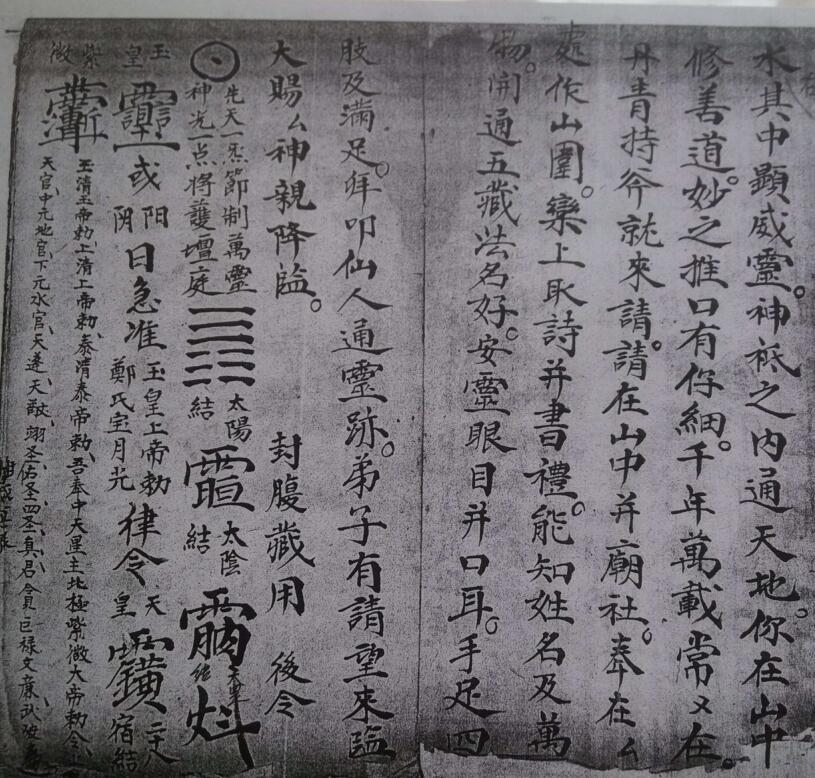 水其中顯威靈。神祗之內通天地。你在山中
修善道。妙之推口有仔細。千年萬載常々在。
丹青持斧就來請。請在山中并廟社。奉在厶
處作山圍。欒上取詩并書禮。能知姓名及萬
物。開通五藏法名好。安靈眼目并口耳。手足四
肢及滿足。拜叩仙人通靈跡。弟子有請望來臨
大賜厶神親降臨。 封腹藏用 後令
先天一炁節制萬靈
神光一点將護壇庭
太陽
結
太陰
結
玉皇
或陽
阴
日急准玉皇上帝勅
鄭氏宝月光
律令
天皇
二十八
宿結
紫微
玉清玉帝勅、上清上帝勅、泰清泰帝勅、吾奉中天星主北極紫微大帝勅令、
天官、中元地官、下元水官、天蓬、天猷、翊圣、佑圣、四圣真君、貪巨祿文廉武破